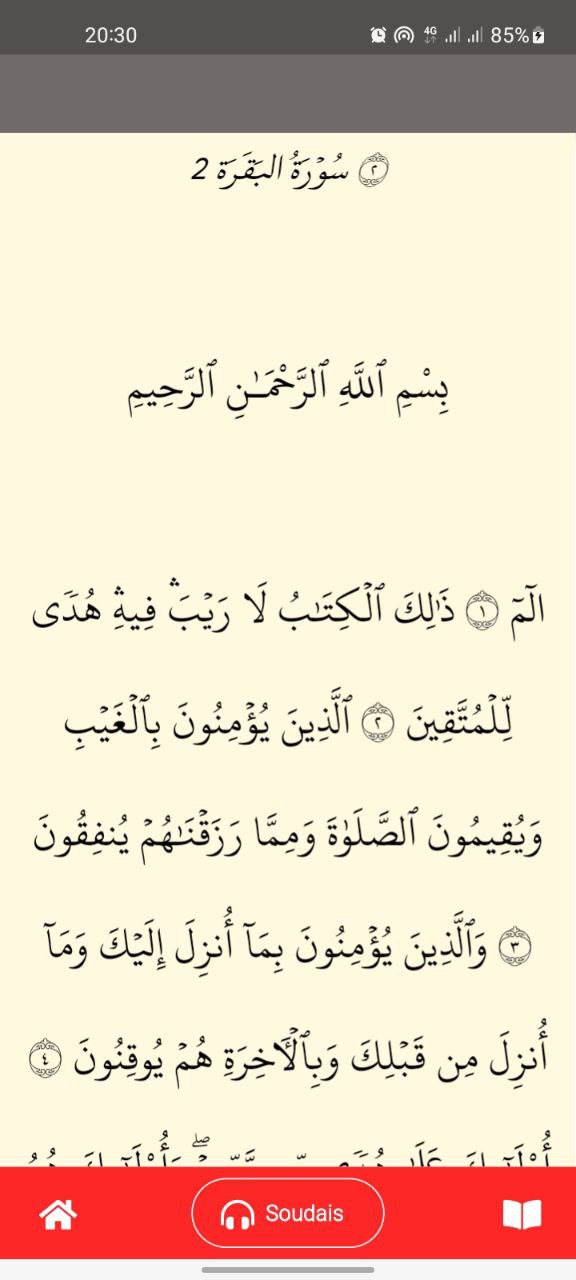 20:30
4G
85%
٢ سُوْرَةُ البَقَرَة 2
بِسْمِ ٱللَّهِ ٱلرَّحْمَـٰنِ ٱلرَّحِيمِ
الٓمٓ ١ ذَٰلِكَ ٱلْكِتَـٰبُ لَا رَيْبَ ۛ فِيهِ ۛ هُدًى
لِّلْمُتَّقِينَ ٢ ٱلَّذِينَ يُؤْمِنُونَ بِٱلْغَيْبِ
وَيُقِيمُونَ ٱلصَّلَوٰةَ وَمِمَّا رَزَقْنَـٰهُمْ يُنفِقُونَ
٣ وَٱلَّذِينَ يُؤْمِنُونَ بِمَآ أُنزِلَ إِلَيْكَ وَمَآ
أُنزِلَ مِن قَبْلِكَ وَبِٱلْـَٔاخِرَةِ هُمْ يُوقِنُونَ ٤
Soudais